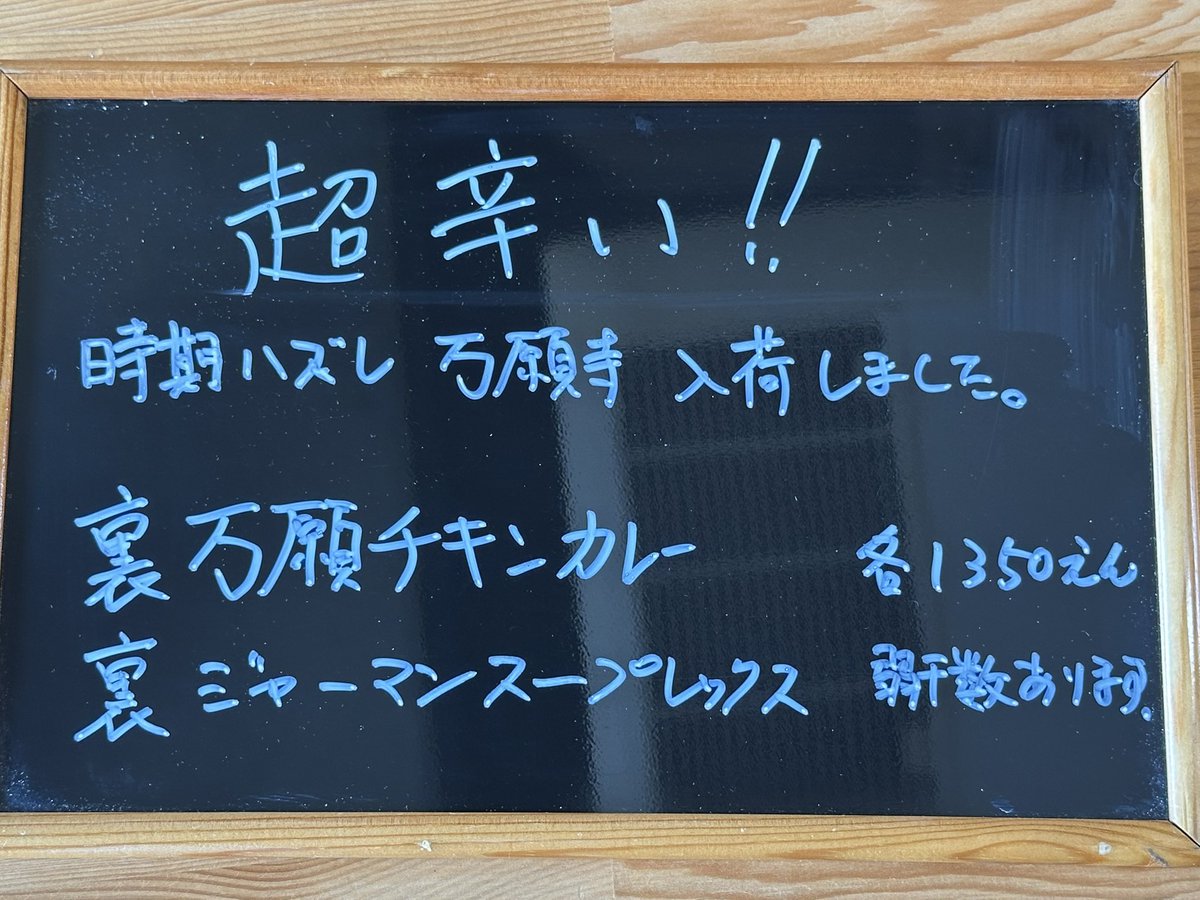 超辛い!!
時期ハズレ 万願寺 入荷しました。
裏 万願チキンカレー 各1350えん
裏 ジャーマンスープレックス 若干数あります。